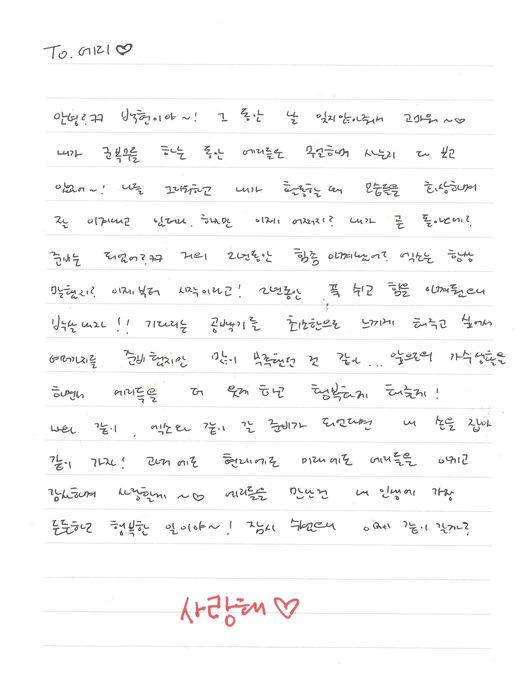 To. 에리♡
안녕?ㅋㅋ 백현이야~! 그 동안 날 잊지않아줘서 고마워~♡
내가 군복무를 하는 동안 에리들은 무얼하며 시간이 다 보고
있었어~! 나를 그리워하고 내가 활동할 때 모습들을 회상하며
잘 이겨내고 있더라. 하지만 이제 어쩌지? 내가 곧 돌아오네?
준비는 되었어?ㅋㅋ 거의 2년동안 힘좀 아껴놨어? 엑소는 항상
말했지? 이제부터 시작이라고! 2년동안 푹 쉬고 힘을 아껴뒀으니
박살내자!! 기다리는 공백기를 최소한으로 느끼게 해주고 싶어서
여러가지를 준비했지만 많이 부족했던 것 같아... 앞으로의 가수생활을
하면서 에리들을 더 웃게 하고 행복하게 해줄게!
나와 같이, 엑소와 같이 갈 준비가 되었다면 내 손을 잡아
같이 가자! 과거에도 현재에도 미래에도 에리들을 아끼고
감사하며 사랑할게~♡ 에리들을 만난건 내 인생에 가장
든든하고 행복한 일이야~! 잠시 쉬었으니 이제 같이 갈까?
사랑해♡